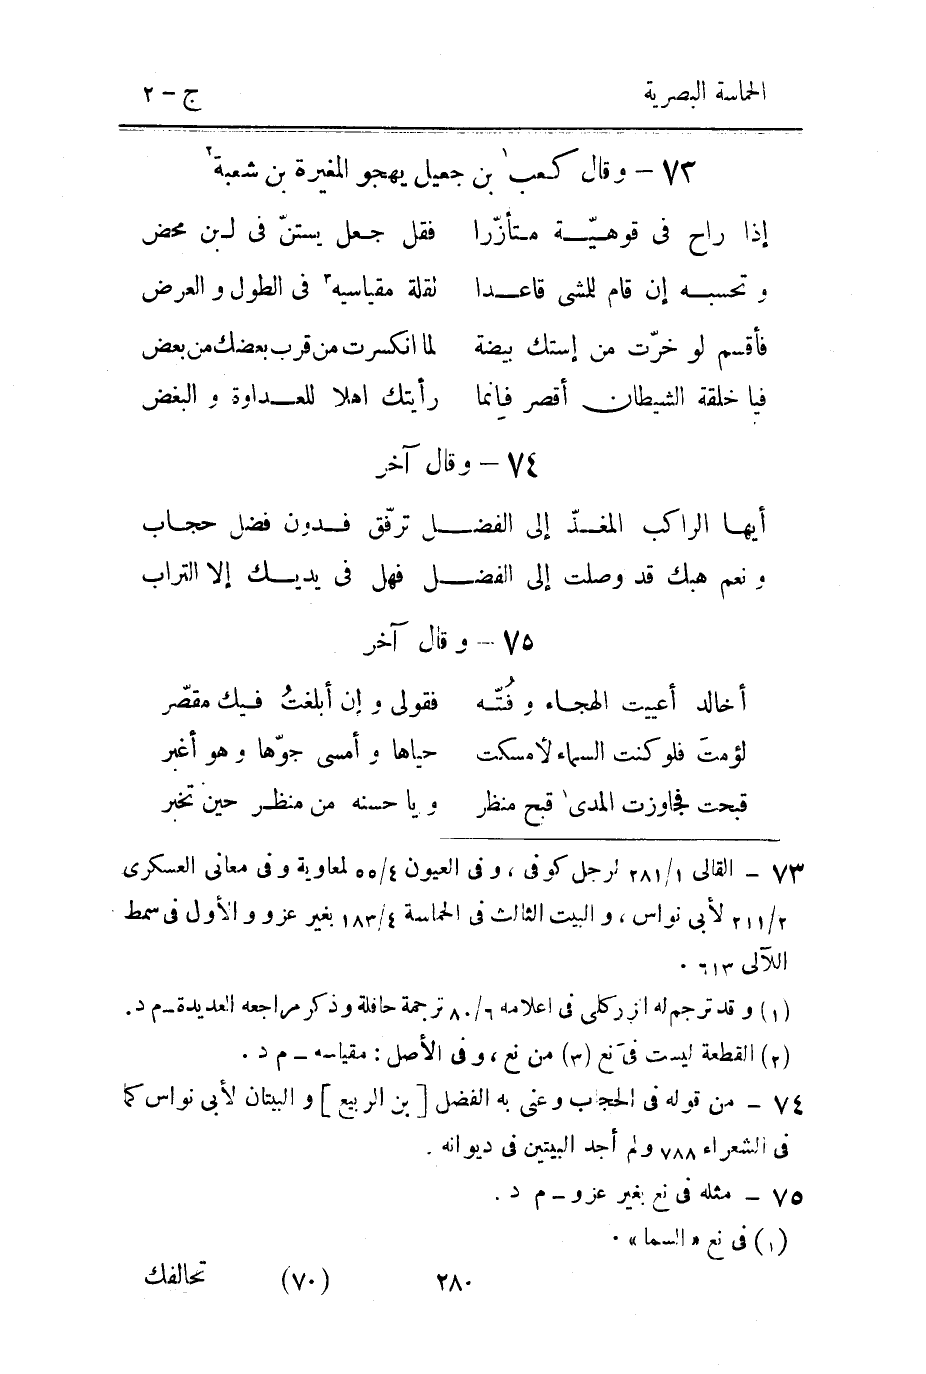 الحماسة البصرية ج - ٢
٧٣ - و قال كعب١ بن جعيل يهجو المغيرة بن شعبة٢
إذا راح فى قوهيّة متأزّرا فقل جعل يستنّ فى لبن محض
و تحسبه إن قام للشى قاعدا لقلة مقياسيه٣ فى الطول و العرض
فأقسم لو خرّت من إستك بيضة لما انكسرت من قرب بعضك من بعض
فيا خلقة الشيطان أقصر فإنما رأيتك اهلا للعداوة و البغض
٧٤ - و قال آخر
أيها الراكب المغذّ إلى الفضل ترفّق فدون فضل حجاب
و نعم هبك قد وصلت إلى الفضل فهل فى يديك إلا التراب
٧٥ - و قال آخر
أخالد أعييت الهجاء و فُتّه فقولى و إن أبلغتُ فيك مقصّر
لؤمتَ فلو كنت السماء لأمسكت حياها و أمسى جوّها و هو أغبر
قبحت فجاوزت المدى١ قبح منظر و يا حسنه من منظر حين تخبر
٧٣ - القالى ٢٨١/١ لرجل كوفى ، و فى العيون ٥٥/٤ لمعاوية و فى معانى العسكرى
٢١١/٢ لأبى نواس ، و البيت الثالث فى الحماسة ١٨٣/٤ بغير عزو و الأول فى سمط
اللآلى ٦١٣ .
(١) و قد ترجم له الزركلى فى اعلامه ٨٠/٦ ترجمة حافلة و ذكر مراجعه العديدة - م د .
(٢) القطعة ليست فى نع (٣) من نع ، و فى الأصل : مقياسه - م د .
٧٤ - من قوله فى الحجاب و عنى به الفضل [ بن الربيع ] و البيتان لأبى نواس كما
فى الشعراء ٧٨٨ و لم أجد البيتين فى ديوانه .
٧٥ - مثله فى نع بغير عزو - م د .
(١) فى نع « السما » .
٢٨٠ (٧٠) تحالفك